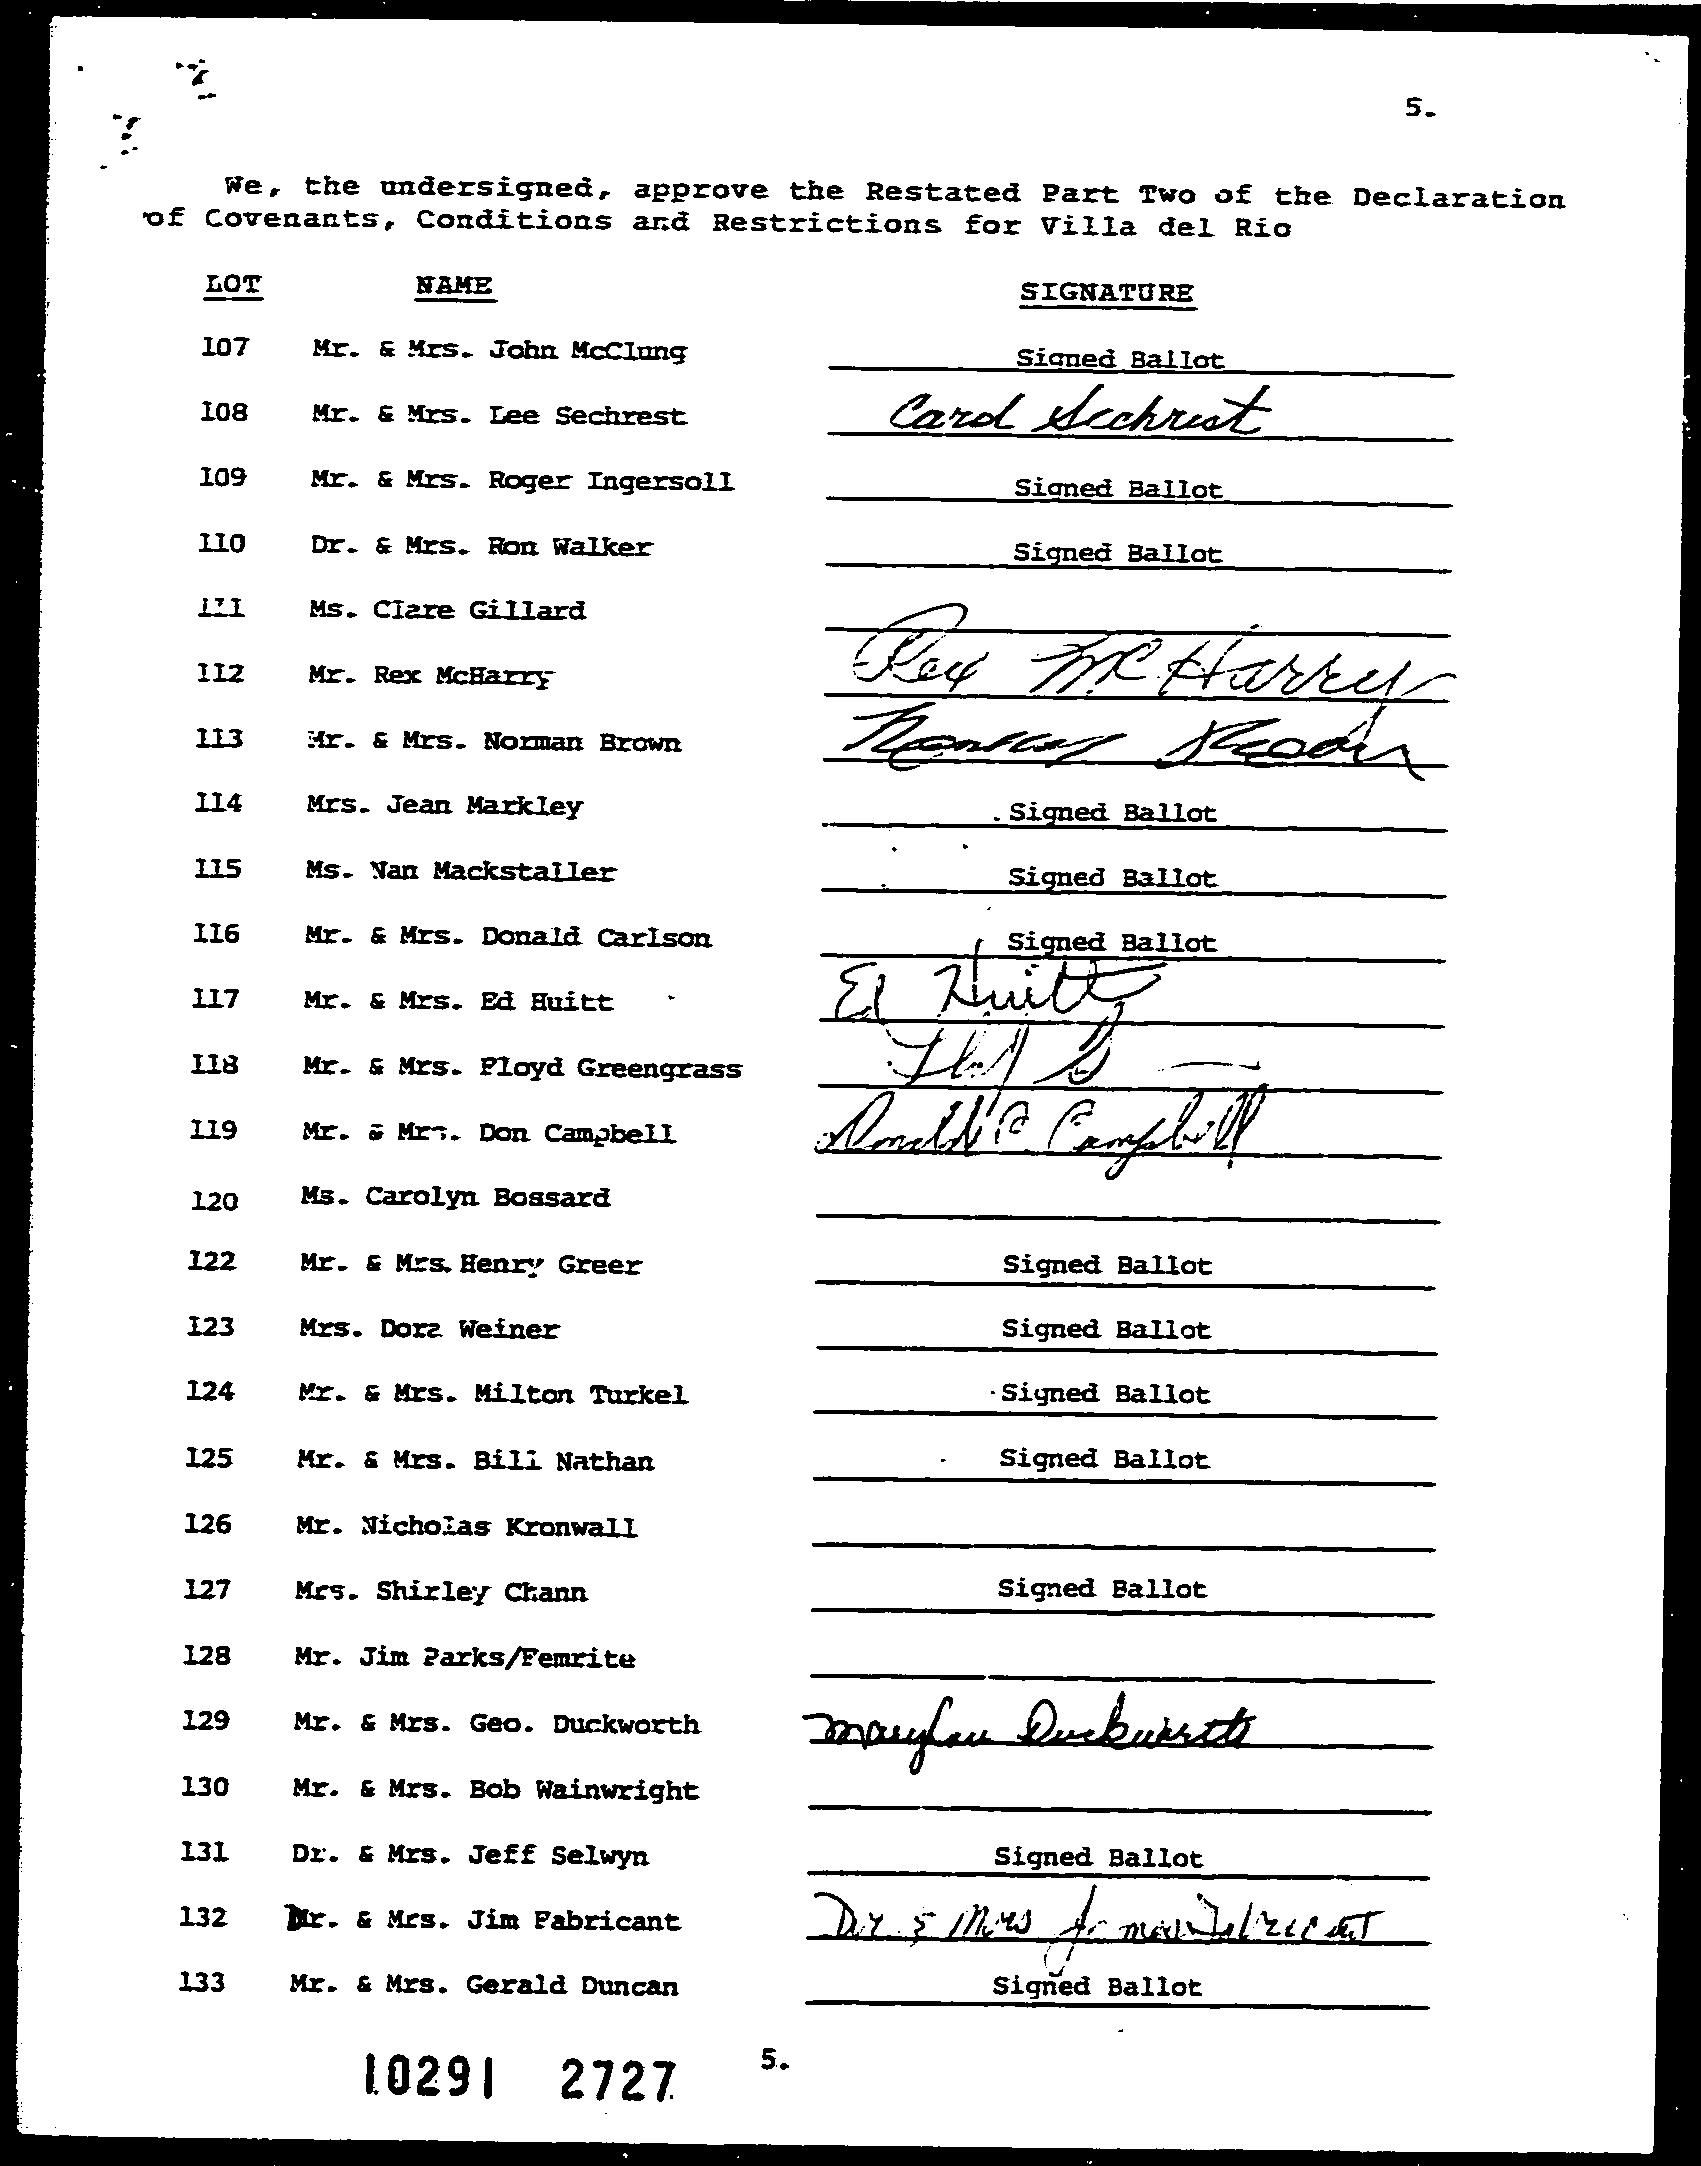 5.
We, the undersigned, approve the Restated Part Two of the Declaration
of Covenants, Conditions and Restrictions for Villa del Rio
LOT NAME SIGNATURE
107 Mr. & Mrs. John McClung Signed Ballot
108 Mr. & Mrs. Lee Sechrest Carol Sechrest
109 Mr. & Mrs. Roger Ingersoll Signed Ballot
110 Dr. & Mrs. Ron Walker Signed Ballot
111 Ms. Clare Gillard
112 Mr. Rex McHarry Rex McHarry
113 Mr. & Mrs. Norman Brown Norman Brown
114 Mrs. Jean Markley Signed Ballot
115 Ms. Nan Mackstaller Signed Ballot
116 Mr. & Mrs. Donald Carlson Signed Ballot
117 Mr. & Mrs. Ed Huitt Ed Huitt
118 Mr. & Mrs. Floyd Greengrass
119 Mr. & Mrs. Don Campbell Donald C Campbell
120 Ms. Carolyn Bossard
122 Mr. & Mrs. Henry Greer Signed Ballot
123 Mrs. Dora Weiner Signed Ballot
124 Mr. & Mrs. Milton Turkel Signed Ballot
125 Mr. & Mrs. Bill Nathan Signed Ballot
126 Mr. Nicholas Kronwall
127 Mrs. Shirley Chann Signed Ballot
128 Mr. Jim Parks/Femrite
129 Mr. & Mrs. Geo. Duckworth Marylou Duckworth
130 Mr. & Mrs. Bob Wainwright
131 Dr. & Mrs. Jeff Selwyn Signed Ballot
132 Dr. & Mrs. Jim Fabricant Dr & Mrs James Fabricant
133 Mr. & Mrs. Gerald Duncan Signed Ballot
10291 2727 5.